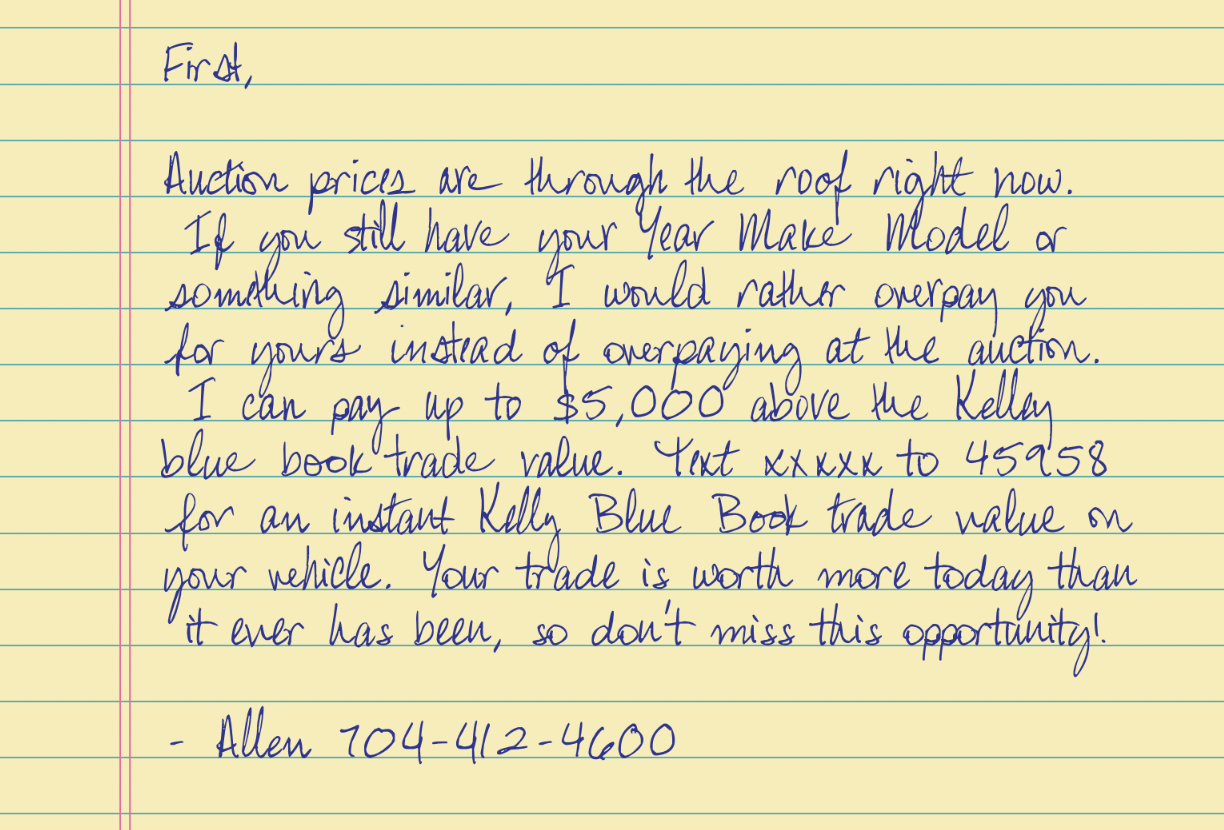 First,
Auction prices are through the roof right now.
If you still have your Year Make Model or
something similar, I would rather overpay you
for yours instead of overpaying at the auction.
I can pay up to $5,000 above the Kelley
blue book trade value. Text xxxxx to 45958
for an instant Kelly Blue Book trade value on
your vehicle. Your trade is worth more today than
it ever has been, so don't miss this opportunity!
- Allen 704-412-4600